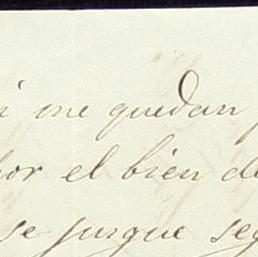 me quedan
por el bien de
se jusque seg